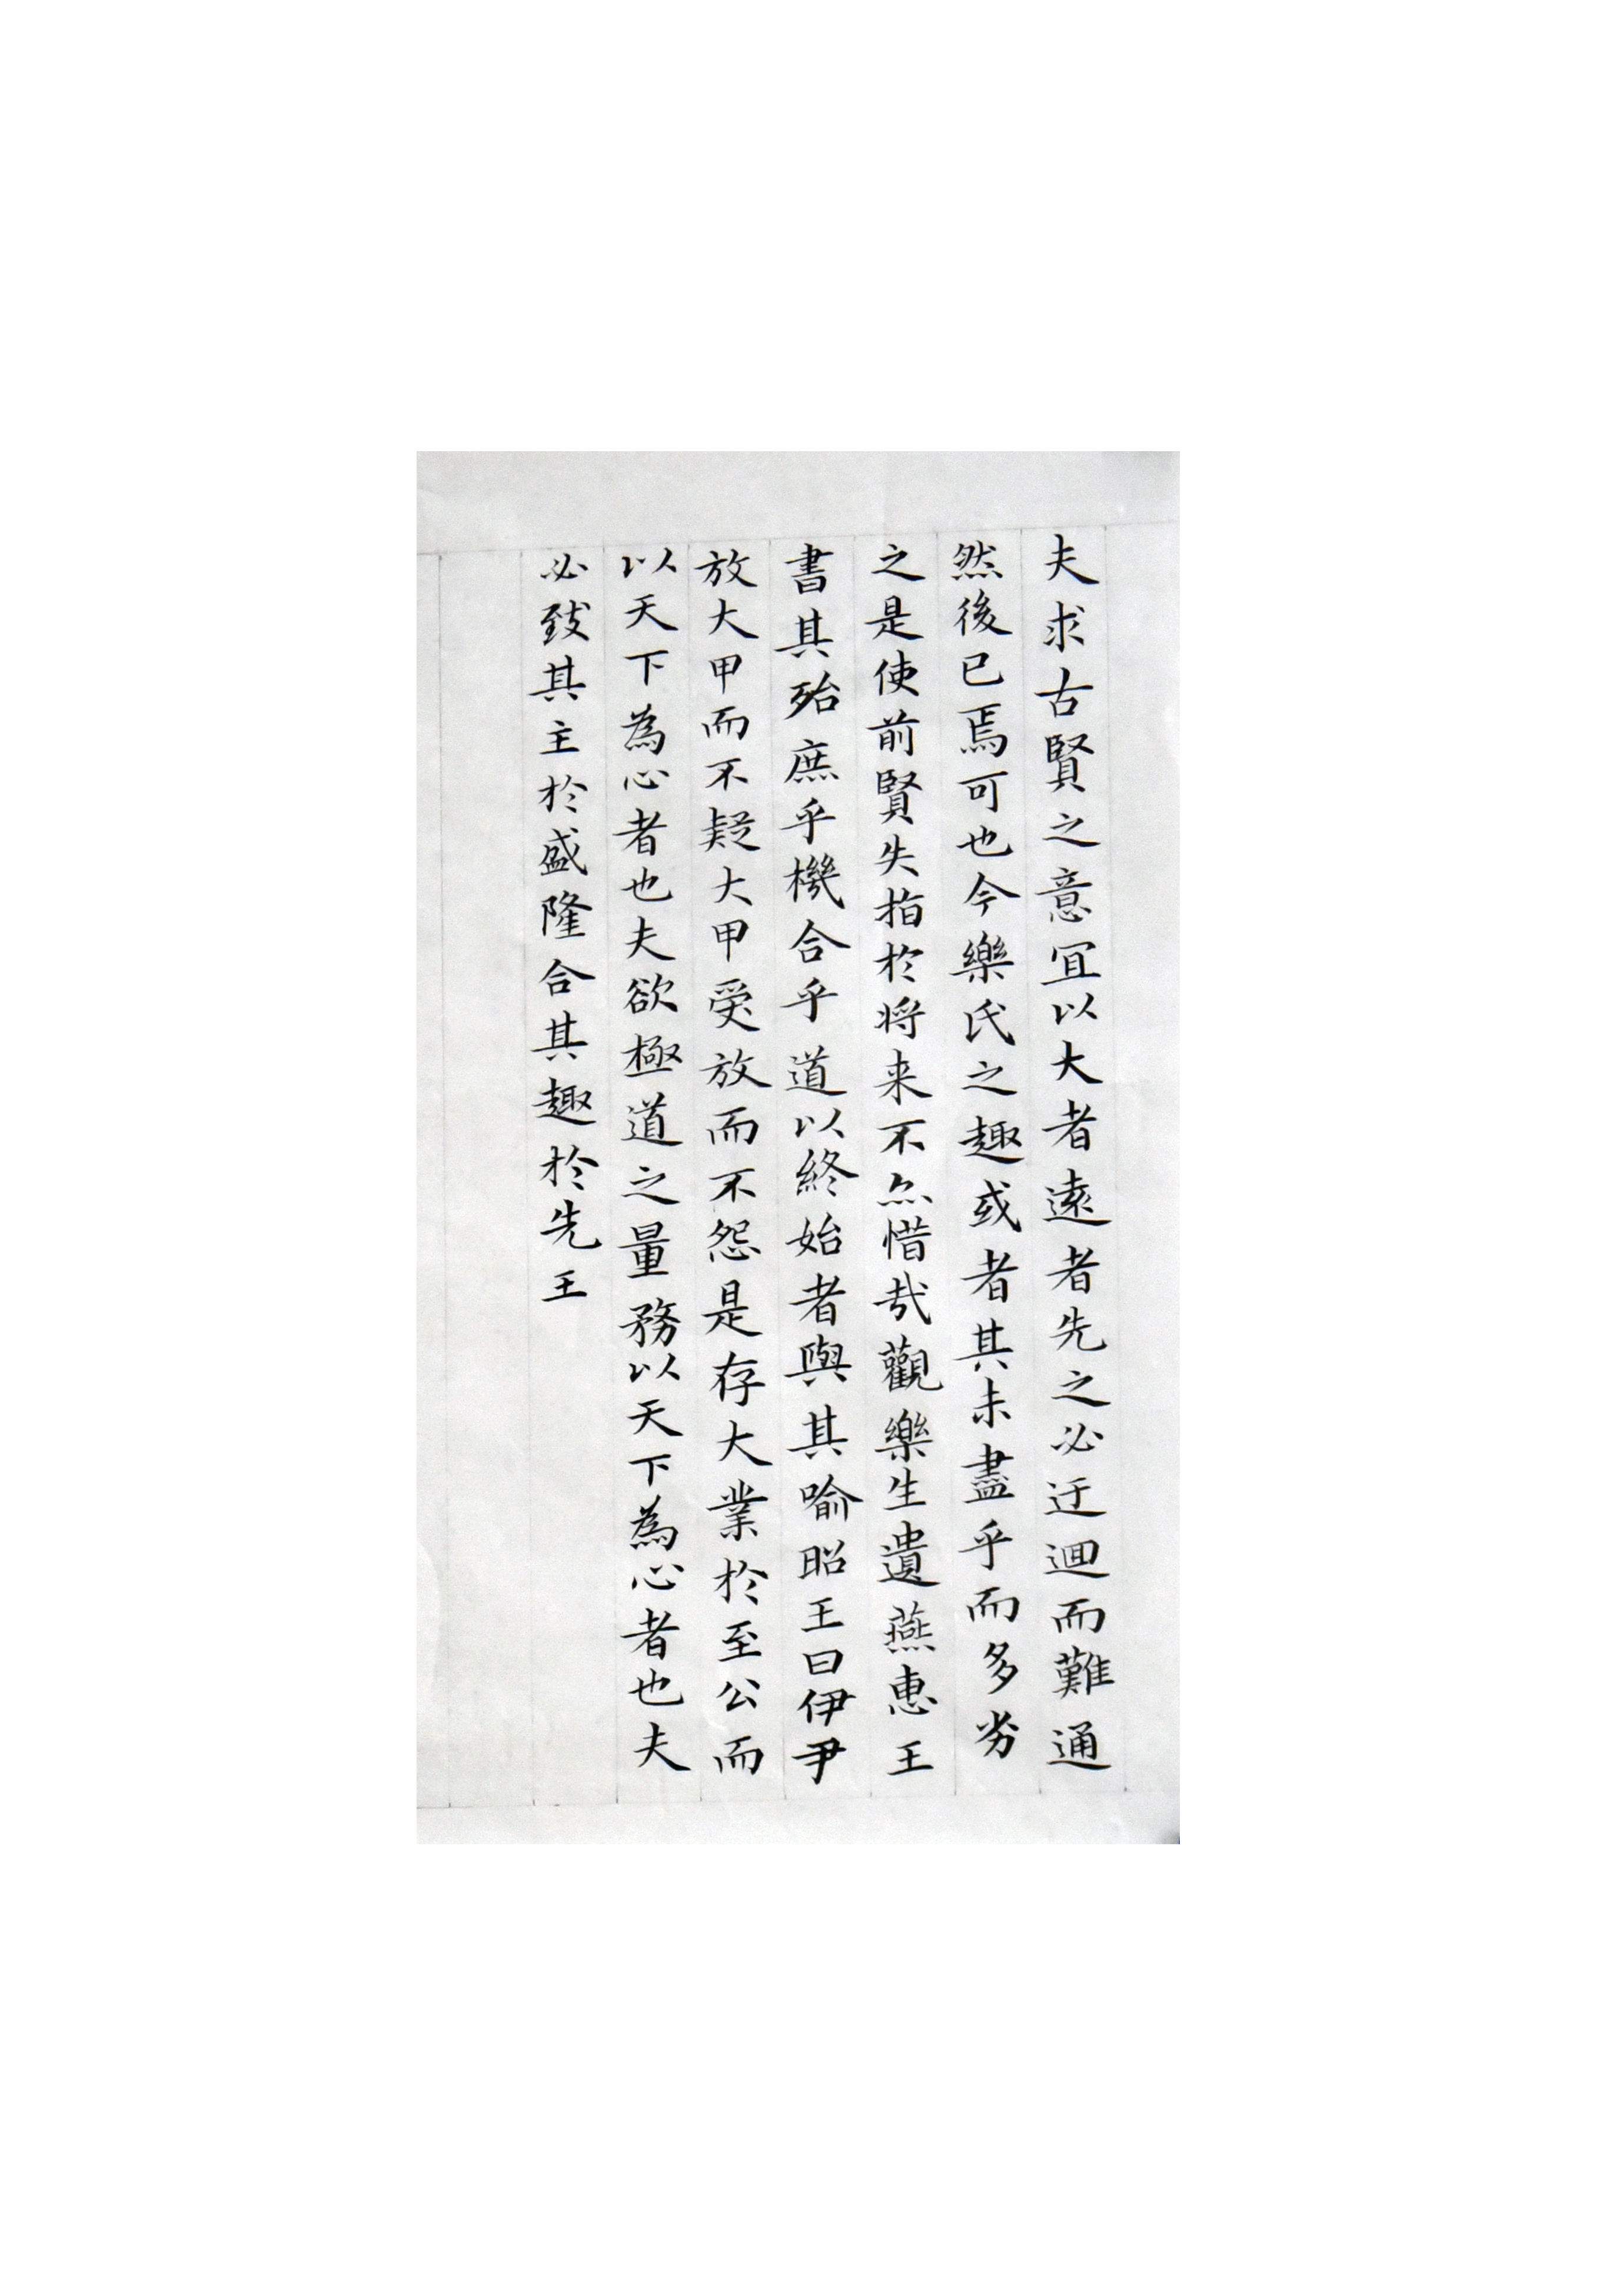 夫求古賢之意宜以大者遠者先之必迂迴而難通
然後已焉可也今樂氏之趣或者其未盡乎而多劣
之是使前賢失指於將来不亦惜哉觀樂生遺燕惠王
書其殆庶乎機合乎道以終始者與其喻昭王曰伊尹
放大甲而不疑大甲受放而不怨是存大業於至公而
以天下為心者也夫欲極道之量務以天下為心者也夫
必致其主於盛隆合其趣於先王